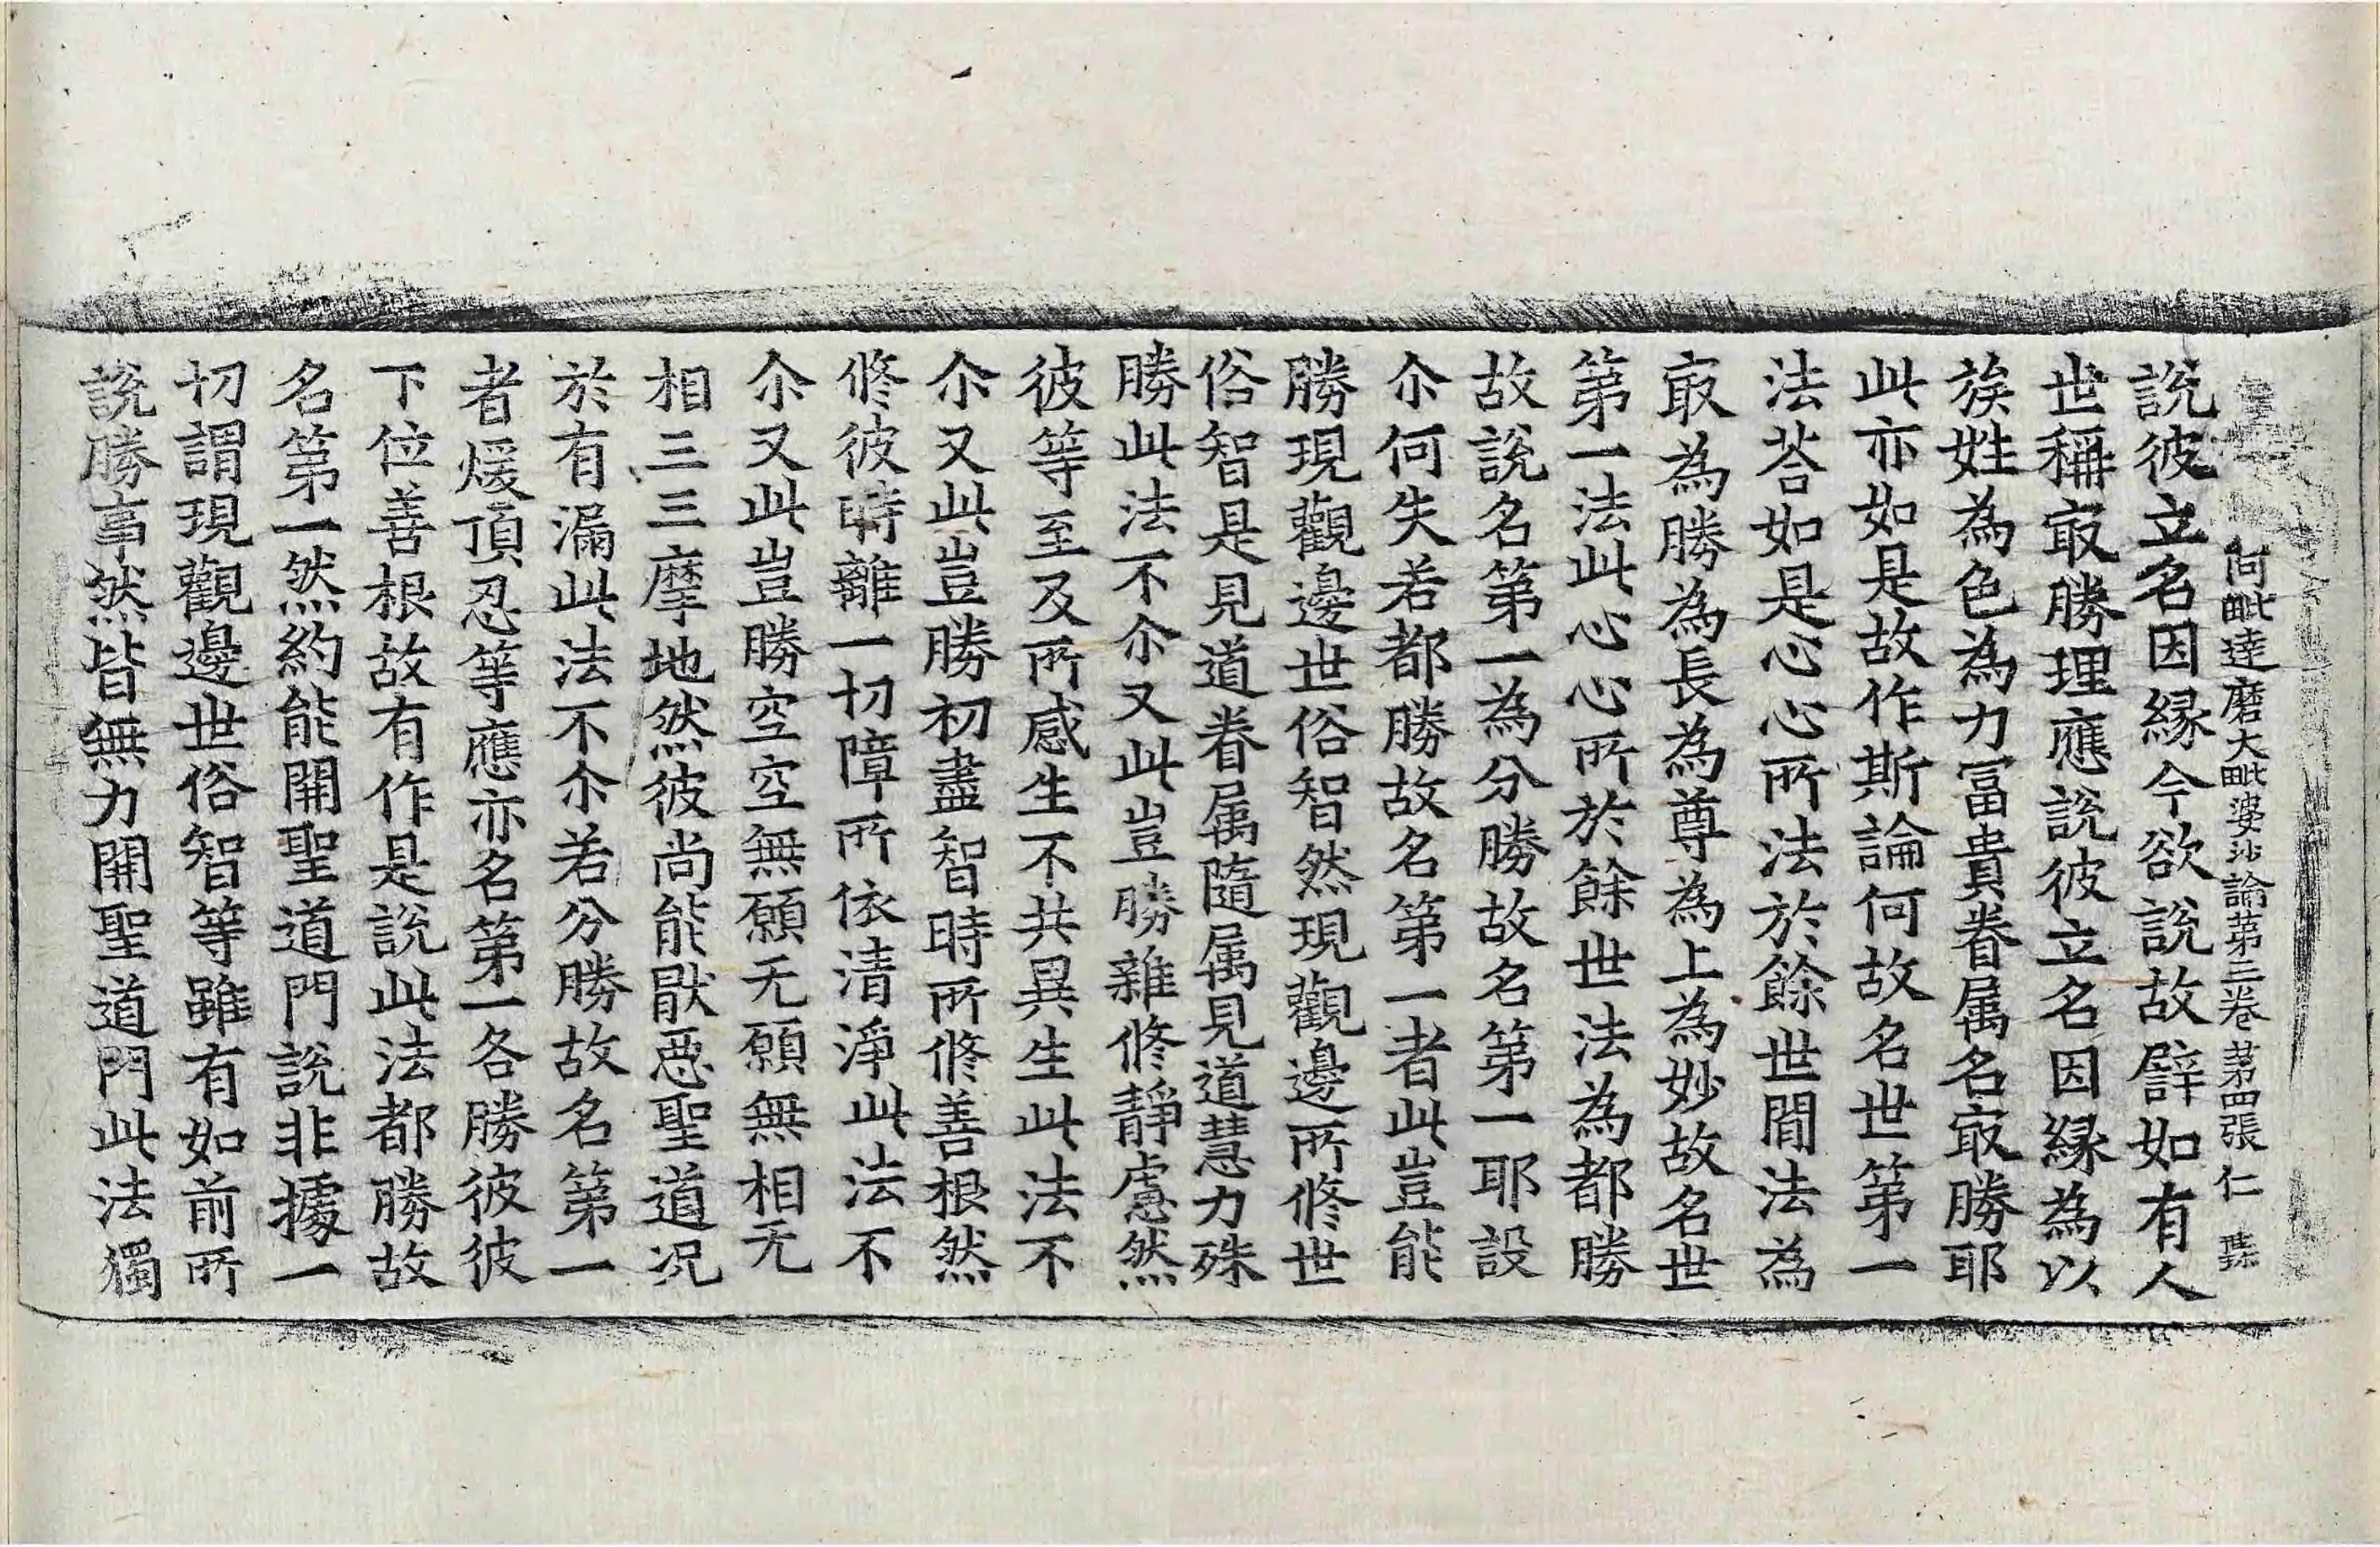 阿毗達磨大毗婆沙論第三卷 苐四張 仁
說彼立名因縁今欲說故譬如有人
世稱㝡勝理應說彼立名因縁為以
族姓為色為力冨貴眷属名㝡勝耶
此亦如是故作斯論何故名世第一
法荅如是心心所法於餘世間法為
㝡為勝為長為尊為上為妙故名世
第一法此心心所於餘世法為都勝
故說名第一為分勝故名第一耶設
尒何失若都勝故名第一者此豈能
勝現觀邊世俗智然現觀邊所修世
俗智是見道眷属隨属見道慧力殊
勝此法不尒又此豈勝雜修靜慮然
彼等至及所感生不共異生此法不
尒又此豈勝初盡智時所修善根然
修彼時離一切障所依清淨此法不
尒又此豈勝空空無願无願無相无
相三三摩地然彼尚能猒惡聖道况
於有漏此法不尒若分勝故名第一
者煖頂忍等應亦名第一各勝彼彼
下位善根故有作是說此法都勝故
名第一然約能開聖道門說非據一
切謂現觀邊世俗智等雖有如前所
說勝事然皆無力開聖道門此法獨